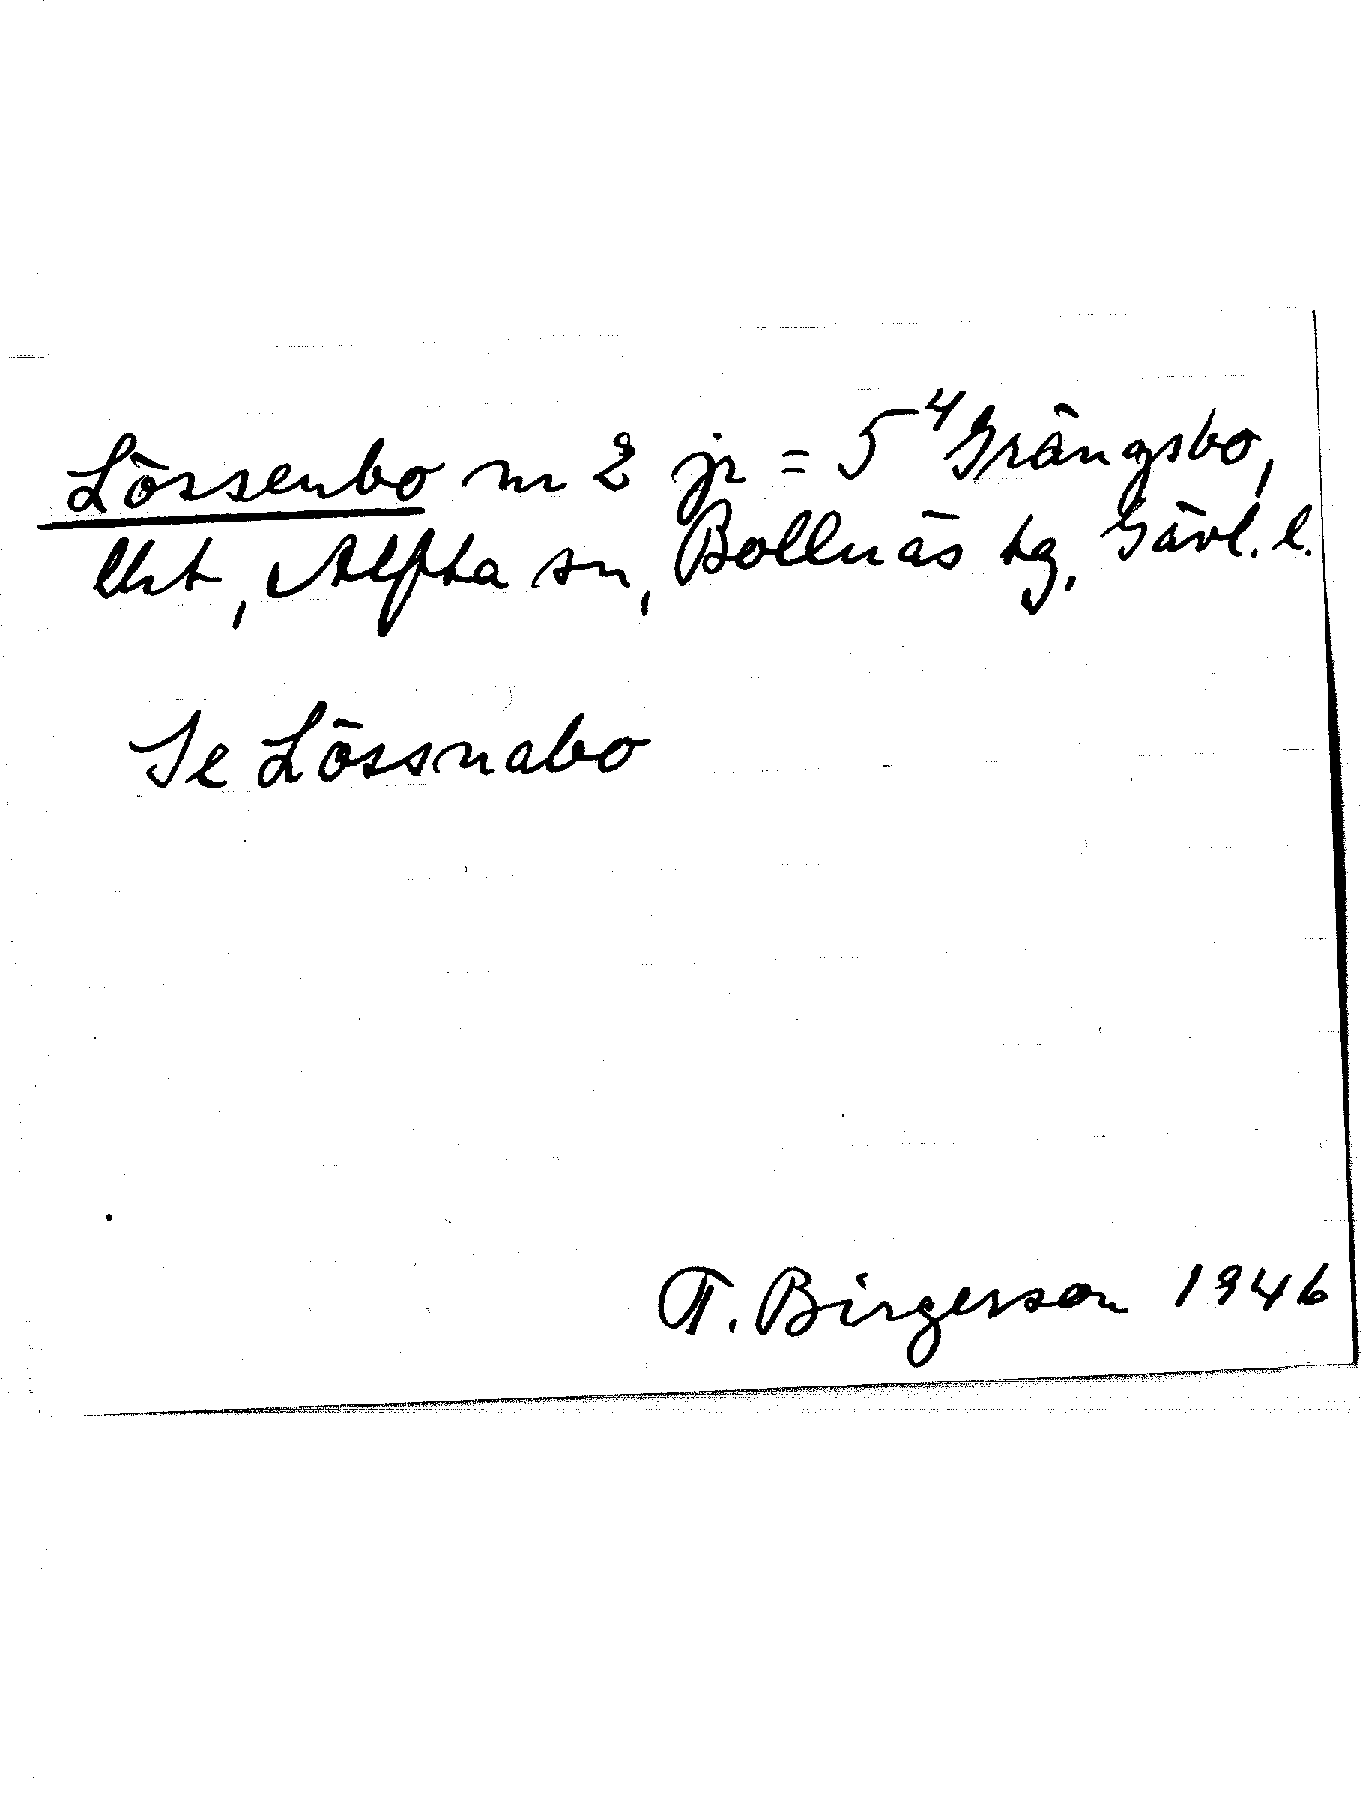 Lössenbo nr 2 jr = 5⁴ Grängsbo,
Urt, Alfta sn, Bollnäs tg, Gävl. l.
Se Lössnabo
T. Birgerson 1946